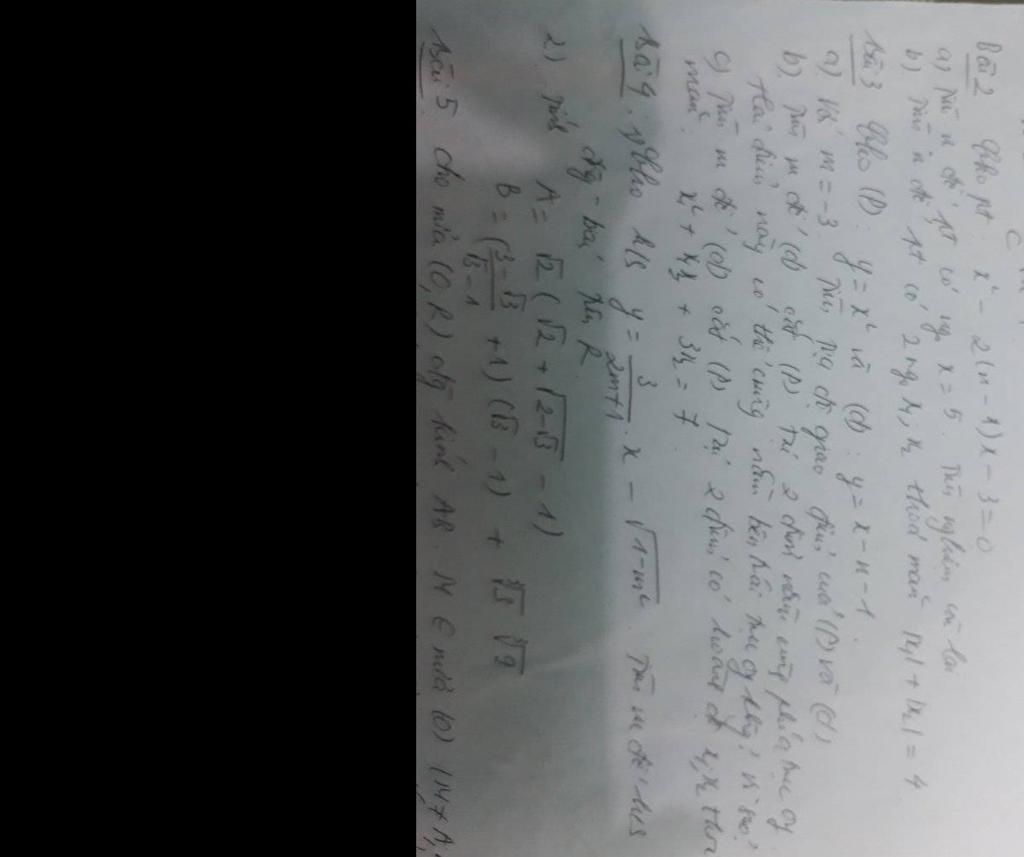 Bài 2 Cho pt: x² - 2(n-1)x - 3 = 0
a) Tìm n để pt có ngo x = 5. Tìm nghiệm còn lại
b) Tìm n để pt có 2 ngo x₁; x₂ thoả mãn |x₁| + |x₂| = 4
Bài 3 Cho (P): y = x² và (d): y = x - n - 1.
a) Vs m = -3. Tìm toạ độ giao điểm của (P) và (d)
b) Tìm m để (d) cắt (P) tại 2 điểm nằm cùng phía trục oy
Hai điểm này có thể cùng nằm bên trái trục oy không? Vì sao?
c) Tìm m để (d) cắt (P) tại 2 điểm có hoành độ x₁; x₂ thoả
mãn: x₁² + x₁x₂ + 3x₂ = 7
Bài 4. 1) Cho h/s y = 3/(2m+1) . x - √(1-m²) Tìm m để h/s
đồng - biến trên R
2) Tính A = √2 (√2 + √(2-√3) - 1)
B = ((3-√3)/(√3-1) + 1) (√3 - 1) + ∛3 ∛9
Bài 5 Cho nửa (O, R) đg kính AB. M ∈ nửa (O) (M ≠ A,